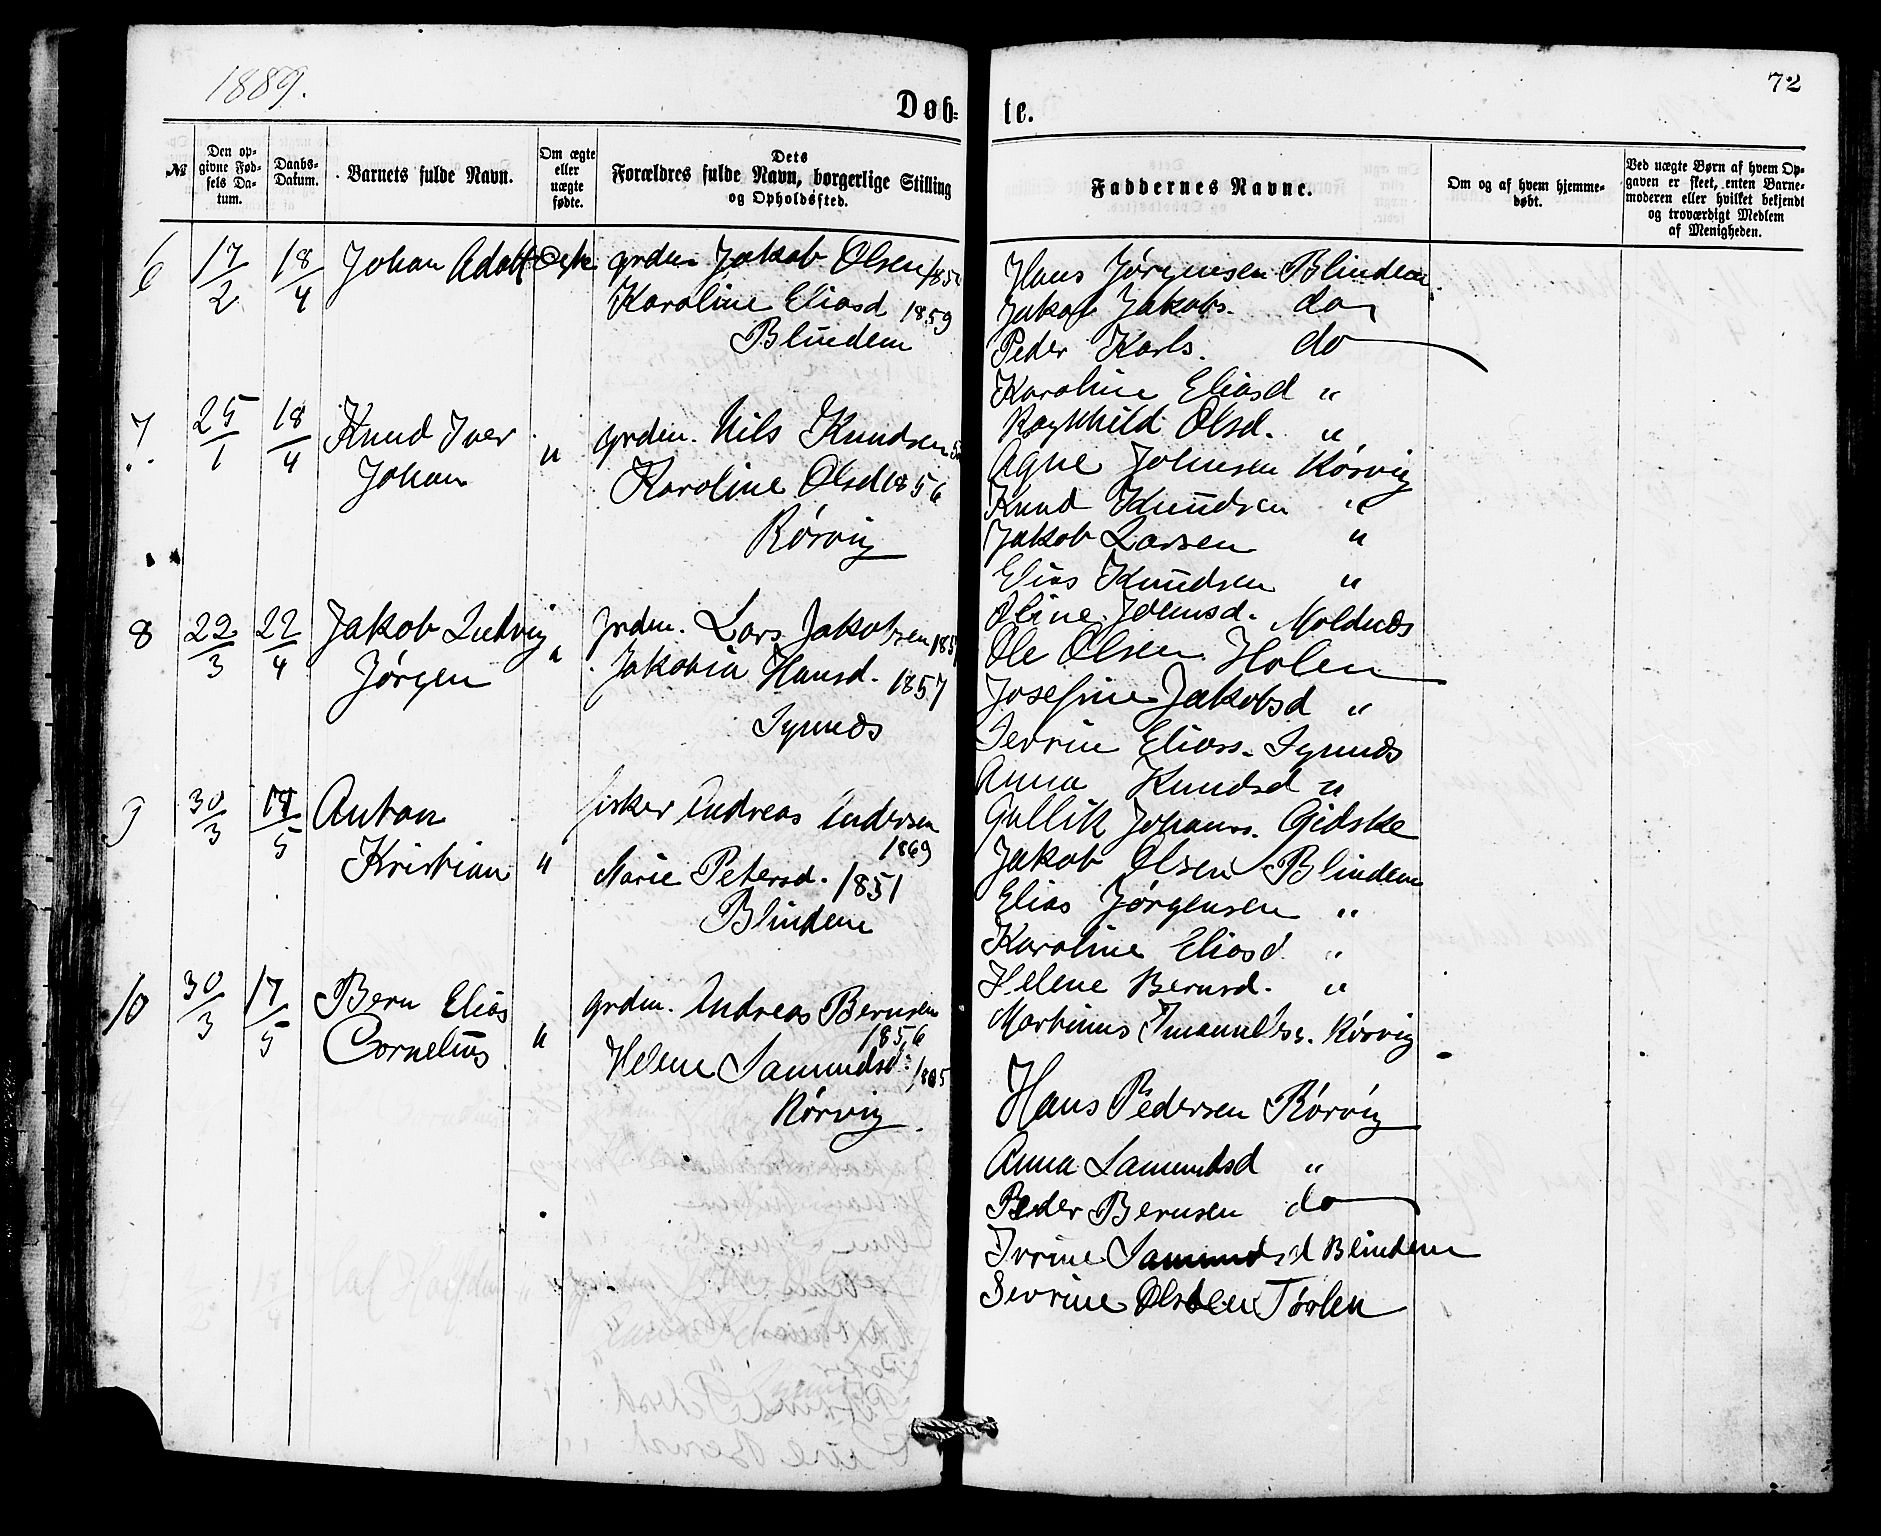 1889.
72
Døb-
te.
№
Den op-
givne Fød-
sels Da-
tum.
Daabs-
Datum.
Barnets fulde Navn.
Om ægte
eller
uægte
fødte.
Dets
Forældres fulde Navn, borgerlige Stilling
og Opholdssted.
Faddernes Navne.
Om og af hvem hjemme-
døbt.
Ved uægte Børn af hvem Op-
gaven er skeet, enten Barne-
moderen eller hvilket bekjendt
og troværdigt Medlem
af Menigheden.
6 17/2 18/4 Johan Adolf Ægte grdm. Jakob Olsen
Karoline Eliasd 1859
Blindem
Hans Jørgensen Blindem
Jakob Jakobs. do
Peder Karls. do
Karoline Eliasd "
Ragnhild Olsd. "
7. 25/1 18/4 Knud Iver " grdm. Nils Knudsen
Johan Karoline Olsd 1856
Rørvig
Agne Johnsen Rørvig
Knud Knudsen "
Jakob Larsen "
Elias Knudsen "
Oline Joensd. Moldnæs
8 22/3 22/4 Jakob Ludvig " grdm. Lars Jakobsen
Jørgen Jakobia Hansd. 1857
Synnæs
Ole Olsen Holen
Josefine Jakobsd "
Sevrin Eliass. Synnæs
Anna Knudsd "
Gullik Johanns. Gidske
9 30/3 17/5 Anton fisker Andreas Andersen
1869
Kristian " Marie Petersd. 1851
Blindem
Jakob Olsen Blindem
Elias Jørgensen "
Karoline Eliasd. "
Helene Bernsd. "
Martinus Imanuels. Rørvig
10 30/3 17/5 Bern Elias grdm. Andreas Bernsen
1856
Cornelius " Helene Samundsd.
Rørvig
Hans Pedersen Rørvig
Anna Samundsd "
Peder Bernsen do
Ivrine Samundsd Blindem
Sevrine Olsden